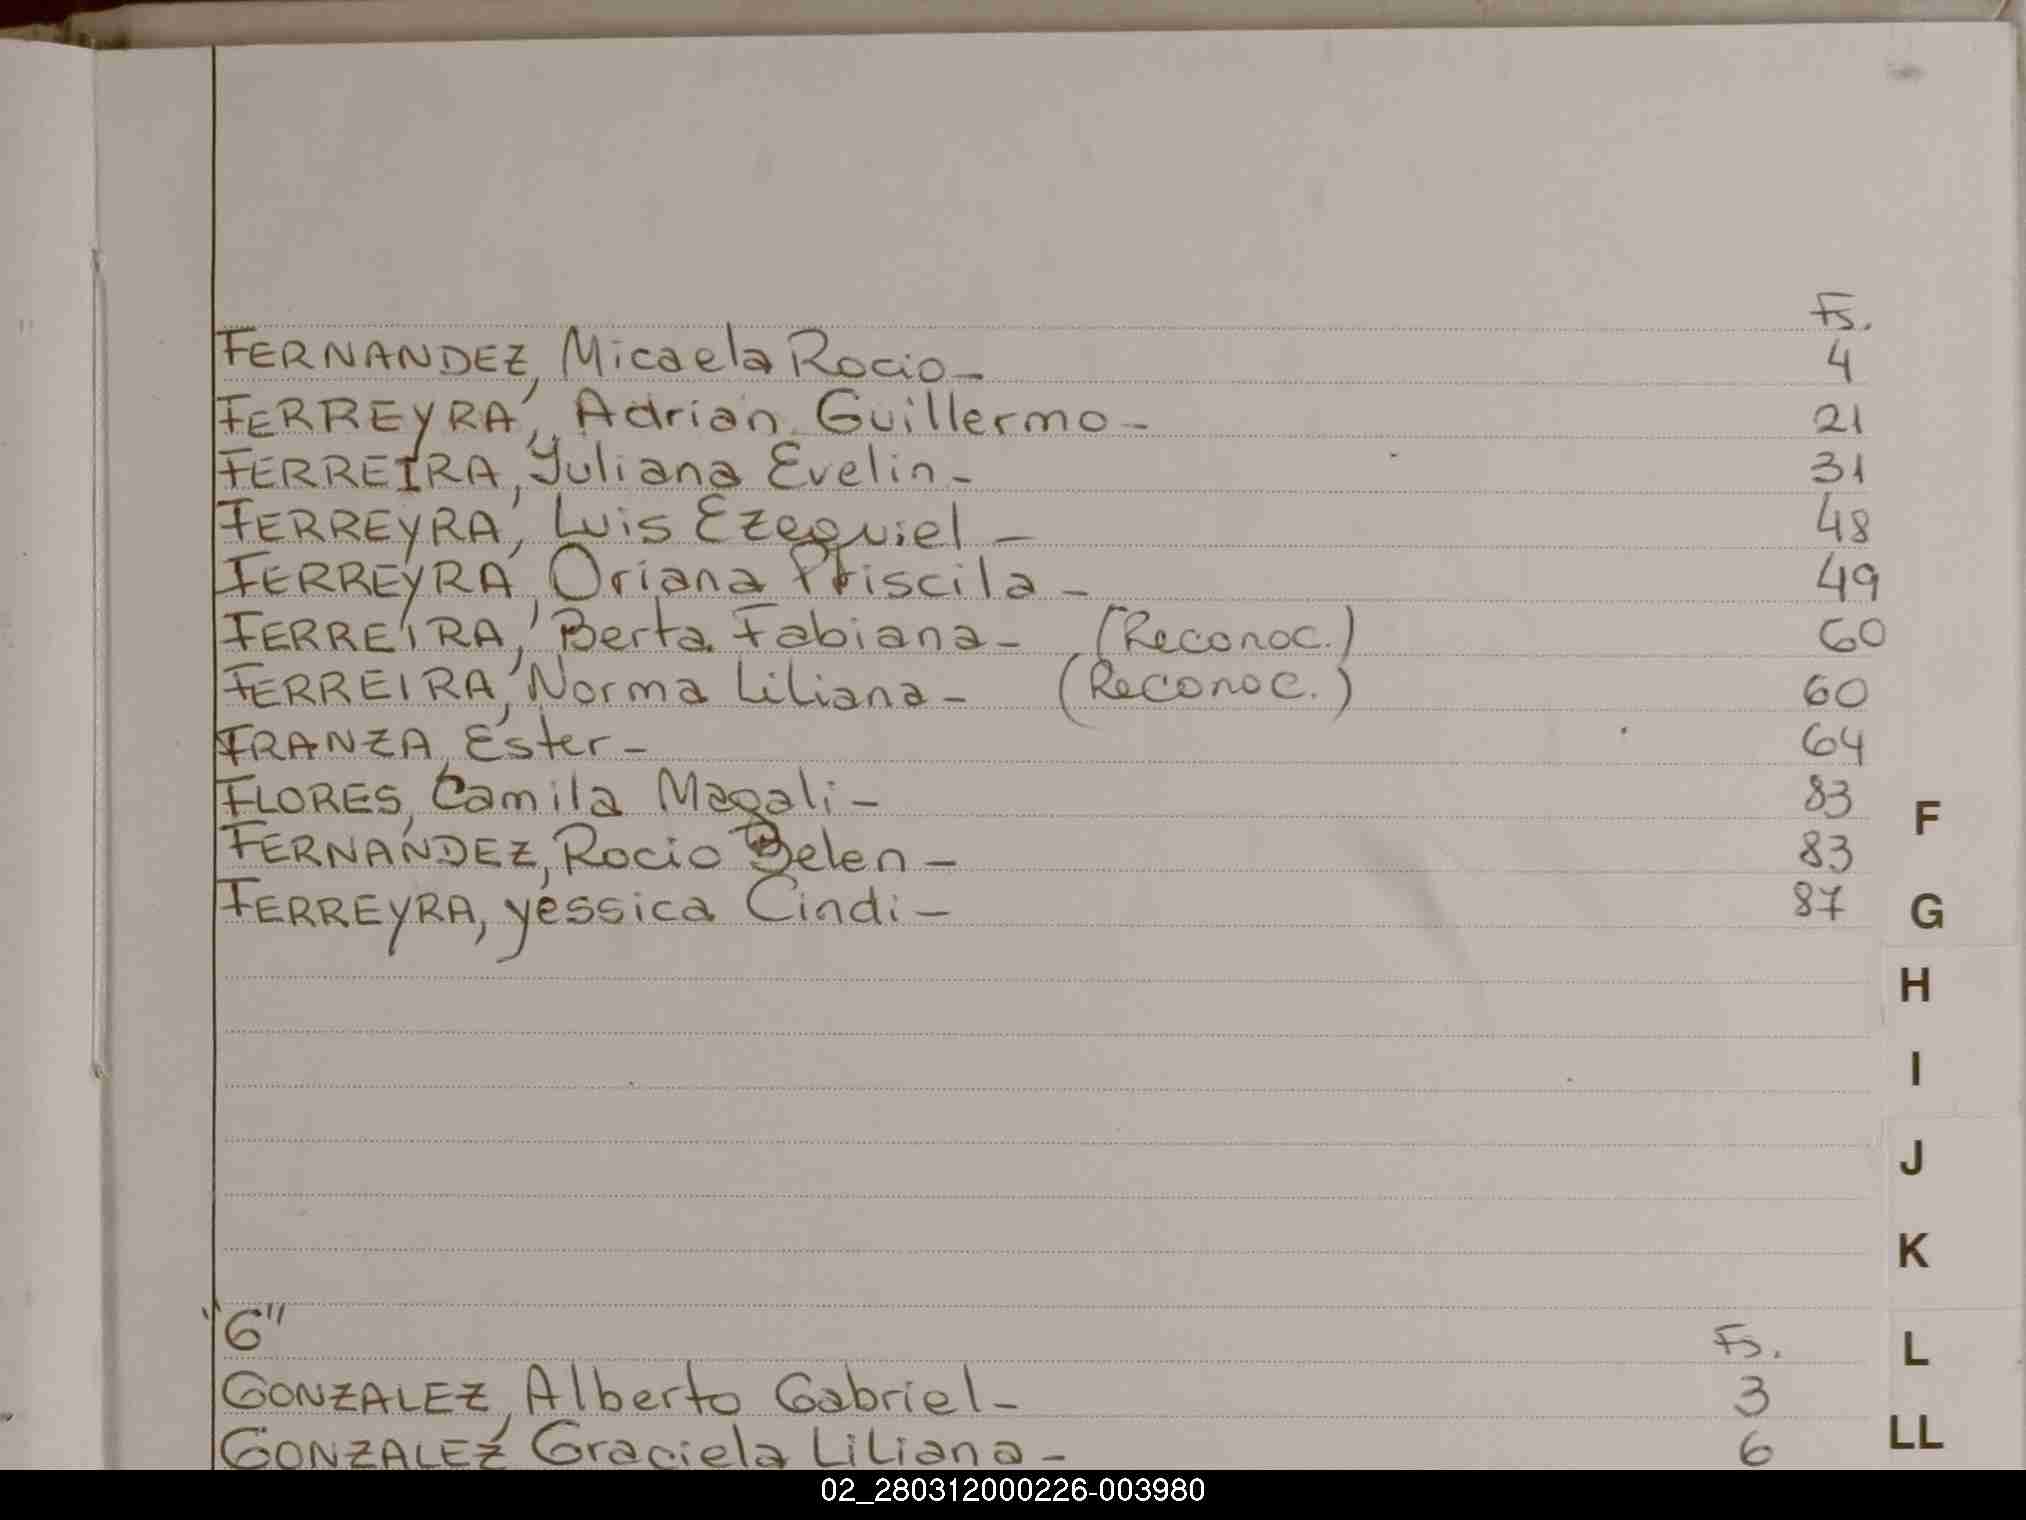 Fs.
FERNANDEZ, Micaela Rocio - 4
FERREYRA, Adrian Guillermo - 21
FERREIRA, Yuliana Evelin - 31
FERREYRA, Luis Ezequiel - 48
FERREYRA, Oriana Priscila - 49
FERREIRA, Berta Fabiana - (Reconoc.) 60
FERREIRA, Norma Liliana - (Reconoc.) 60
FRANZA, Ester - 64
FLORES, Camila Magali - 83
FERNANDEZ, Rocio Belen - 83
FERREYRA, Yessica Cindi - 87
F
G
H
I
J
K
"G" Fs.
L
GONZALEZ, Alberto Gabriel - 3
LL
GONZALEZ, Graciela Liliana - 6
02_280312000226-003980